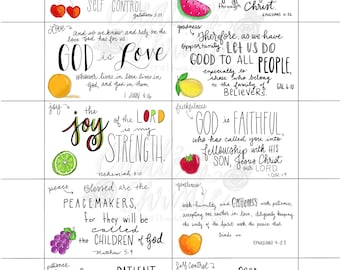 SELF CONTROL.
galatians 5:23
through
Christ
EPHESIANS 4:32
love
And so we know and rely on the
love God has for us.
GOD is Love
Whoever lives in love lives in
God, and God in them.
1 JOHN 4:16
goodness
Therefore, as we have
opportunity, LET US DO
GOOD TO ALL PEOPLE,
especially to
those who belong
to the family of
BELIEVERS.
GAL 6:10
joy
the
joy OF the LORD
is my
STRENGTH.
nehemiah 8:10
faithfulness
GOD is FAITHFUL,
who has called you into
fellowship with HIS
SON, Jesus Christ
our LORD
1 COR 1:9
peace
Blessed are the
PEACEMAKERS,
For they will be
called
the CHILDREN of God.
Matthew 5:9
gentleness
with humility and GENTLENESS with
patience,
accepting one another in love, diligently keeping
the unity of the spirit with the peace that
binds us
EPHESIANS 4:2-3
patience
PATIENT
Self Control